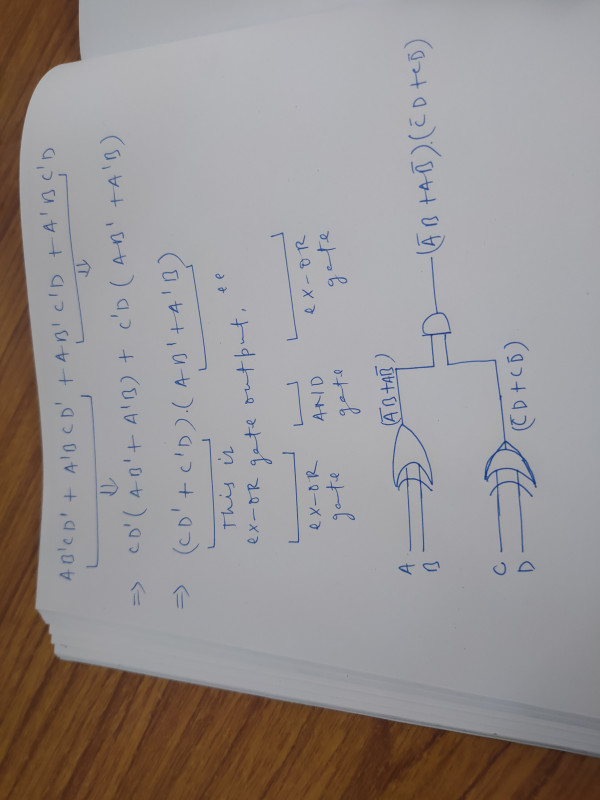 AB'CD' + A'BCD' + AB'C'D + A'BC'D
⇓ ⇓
⇒ CD'(AB' + A'B) + C'D(AB' + A'B)
⇒ (CD' + C'D).(AB' + A'B)
This is
ex-OR gate output, "
ex-OR AND ex-OR
gate gate gate
A
B
(A̅B+AB̅)
(A̅B+AB̅).(C̅D+CD̅)
C
D
(C̅D+CD̅)